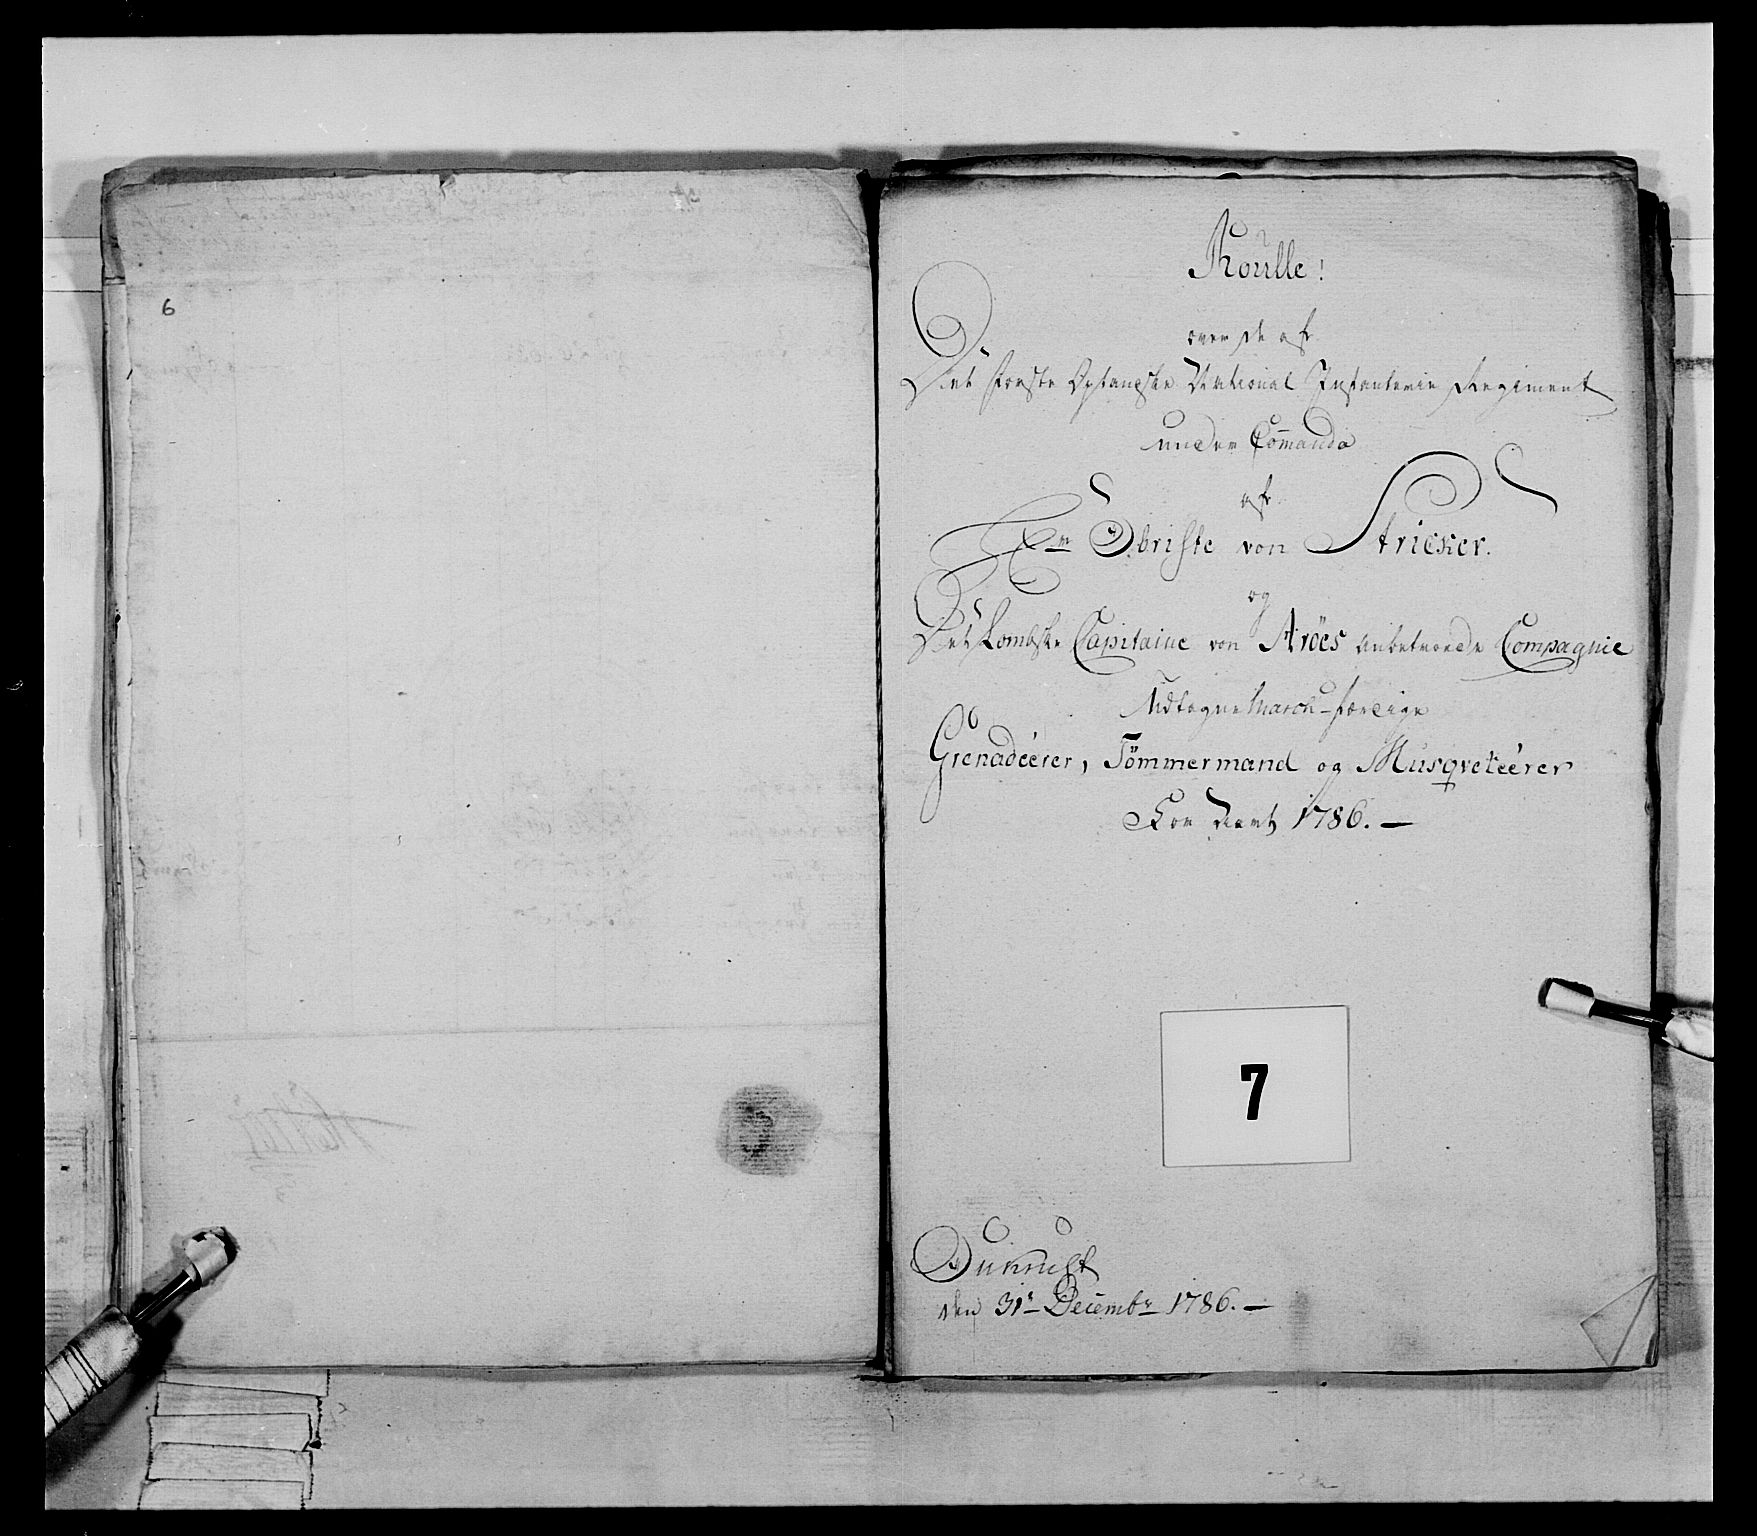 6
Roulle!
over de af
Det første Oplandske National Infanterie Regiment
under Com̄ando
af
Hr Obriste von Stricker.
og
Det Lombske Capitaine von Aröes anbetroede Compagnie
Udtagne March-færdige
Grenadéerer, Tömmermand og Musqvetéerer
For Aaret 1786. —
7
den 31t Decembr 1786. —